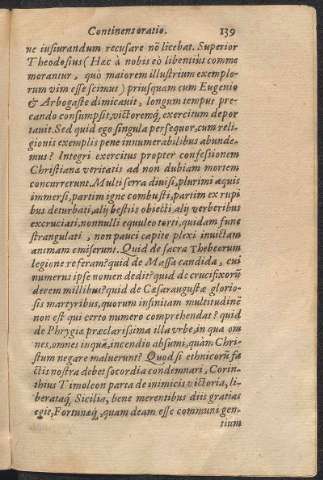 Continens oratio. 139
ne iusiurandum recusare nõ licebat. Superior
Theodosius (Hec à nobis eò libentius comme
morantur, quò maiorem illustrium exemplo-
rum vim esse scimus) priusquam cum Eugenio
& Arbogaste dimicauit, longum tempus pre-
cando consumpsit, victoremq́; exercitum depor
tauit. Sed quid ego singula persequor, cum reli-
gionis exemplis pene innumerabilibus abunde-
mus? Integri exercitus propter confessionem
Christianæ veritatis ad non dubiam mortem
concurrerunt. Multi serra diuisi, plurimi aquis
immersi, partim igne combusti, partim ex rupi
bus deturbati, alij bestiis obiecti, alij verberibus
excruciati, nonnulli equuleo torti, quidam fune
strangulati, non pauci capite plexi inuictam
animam emiserunt. Quid de sacra Thebeorum
legione referam? quid de Massa candida, cui
numerus ipse nomen dedit? quid de crucifixorũ
decem millibus? quid de Cæsaraugustæ glorio-
sis martyribus, quorum infinitam multitudinẽ
non est qui certo numero comprehendat? quid
de Phrygiæ præclarissima illa vrbe, in qua om
nes, omnes inquã, incendio absumi, quàm Chri-
stum negare maluerunt? Quod si ethnicorũ fa
ctis nostra debet socordia condemnari, Corin-
thius Timoleon parta de inimicis victoria, li-
berataq́; Sicilia, bene merentibus diis gratias
egit, Fortunæq́;, quam deam esse communi gen-
tium